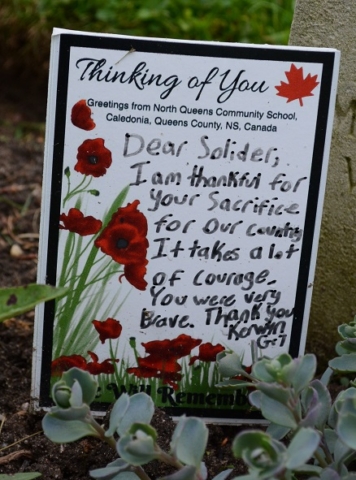 Thinking of You
Greetings from North Queens Community School,
Caledonia, Queens County, NS, Canada
Dear Solider,
I am thankful for
your Sacrifice
for our country
It takes a lot
of courage.
You were very
Brave. Thank you
Gr 7
Will Remember